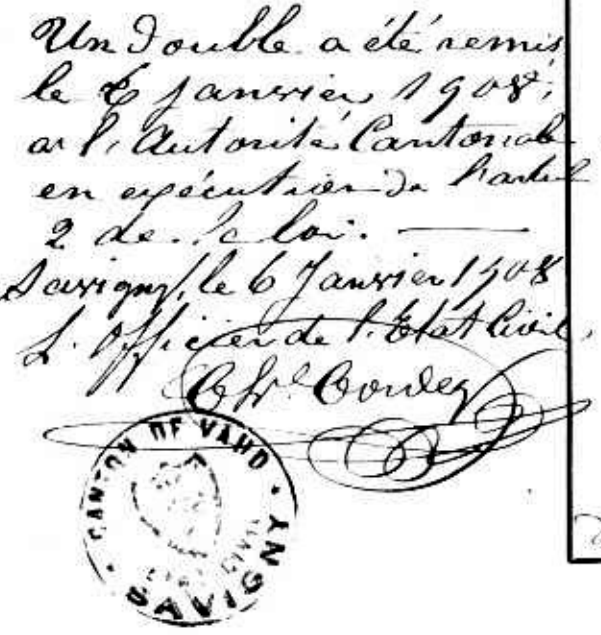 Un Double a été remis
le 6 janvier 1908,
à l'Autorité Cantonale
en exécution de l'article
2 de la loi. —
Savigny, le 6 Janvier 1908
L'Officier de l'Etat Civil,
CANTON DE VAUD
ETAT CIVIL
SAVIGNY